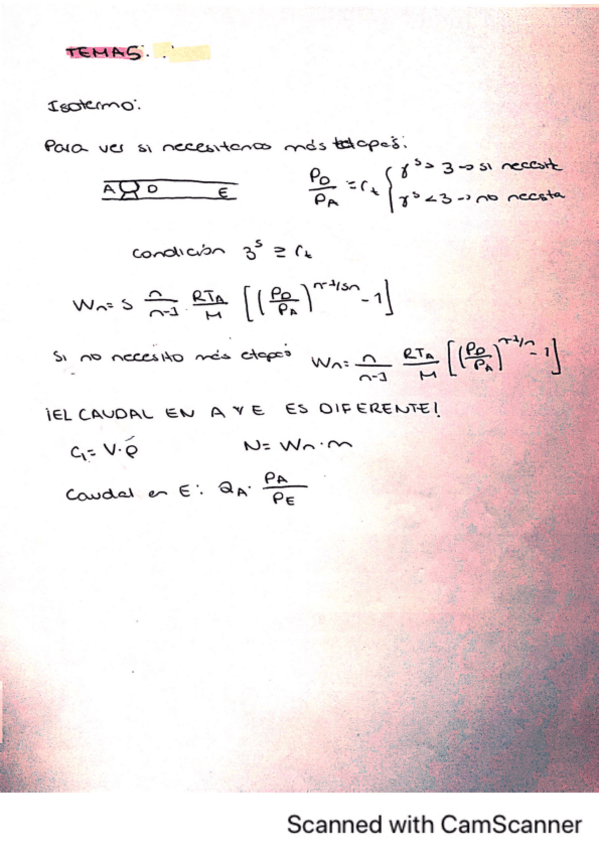 TEMA 5:
Isotermo:
Para ver si necesitamos más etapas:
A D E
P_D/P_A = r_t { r^s > 3 → si necesit
r^s < 3 → no necesita
condición 3^s ≥ r_t
W_n = s n/n-1 RT_A/M [(P_D/P_A)^n-1/sn - 1]
Si no necesito más etapas W_n = n/n-1 RT_A/M [(P_D/P_A)^n-1/n - 1]
¡EL CAUDAL EN A Y E ES DIFERENTE!
G = V·ρ N = W_n · m
Caudal en E: Q_A · P_A/P_E
Scanned with CamScanner